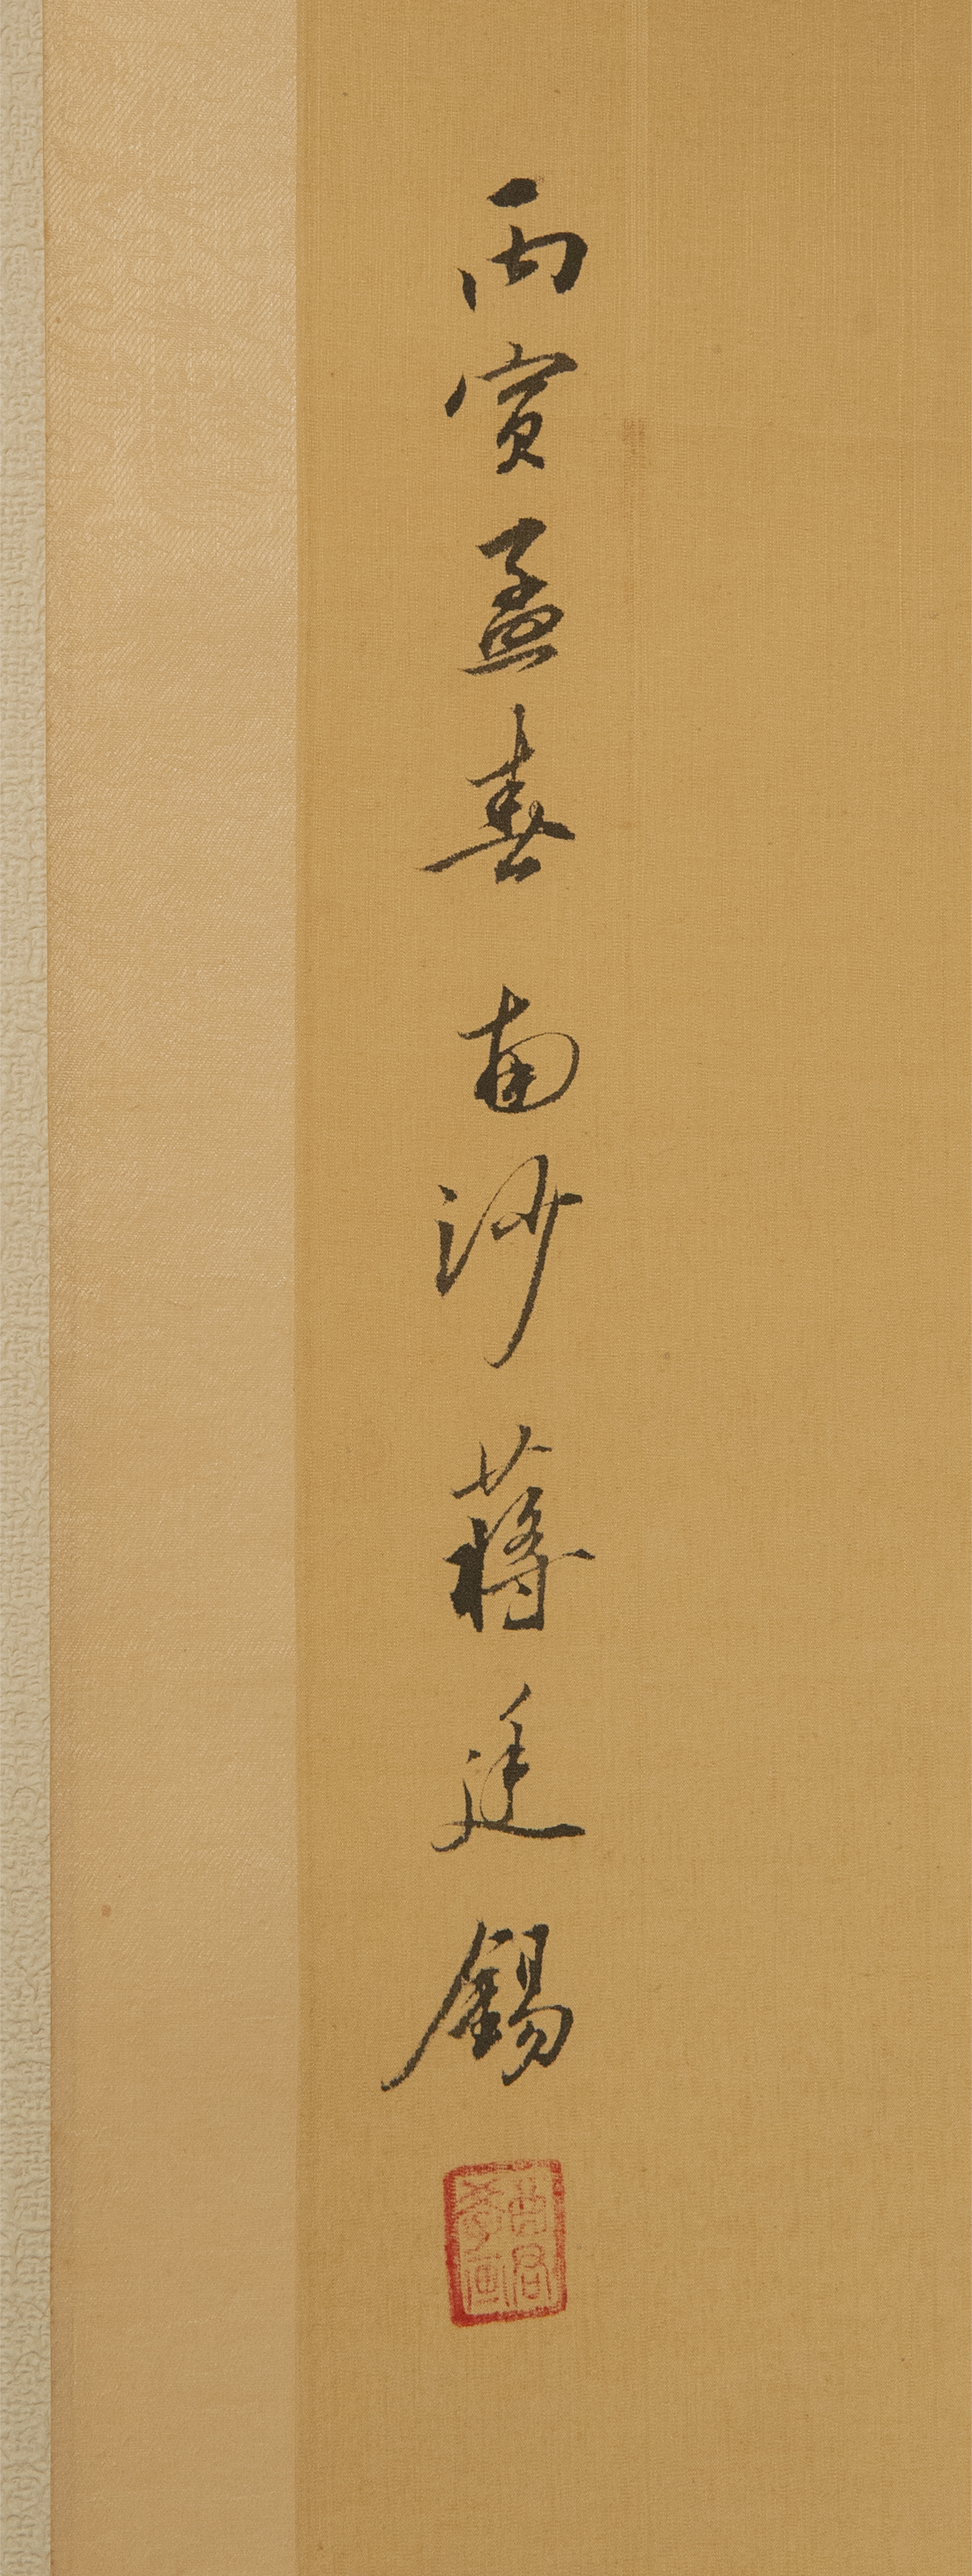 丙寅孟春 南沙蔣廷錫